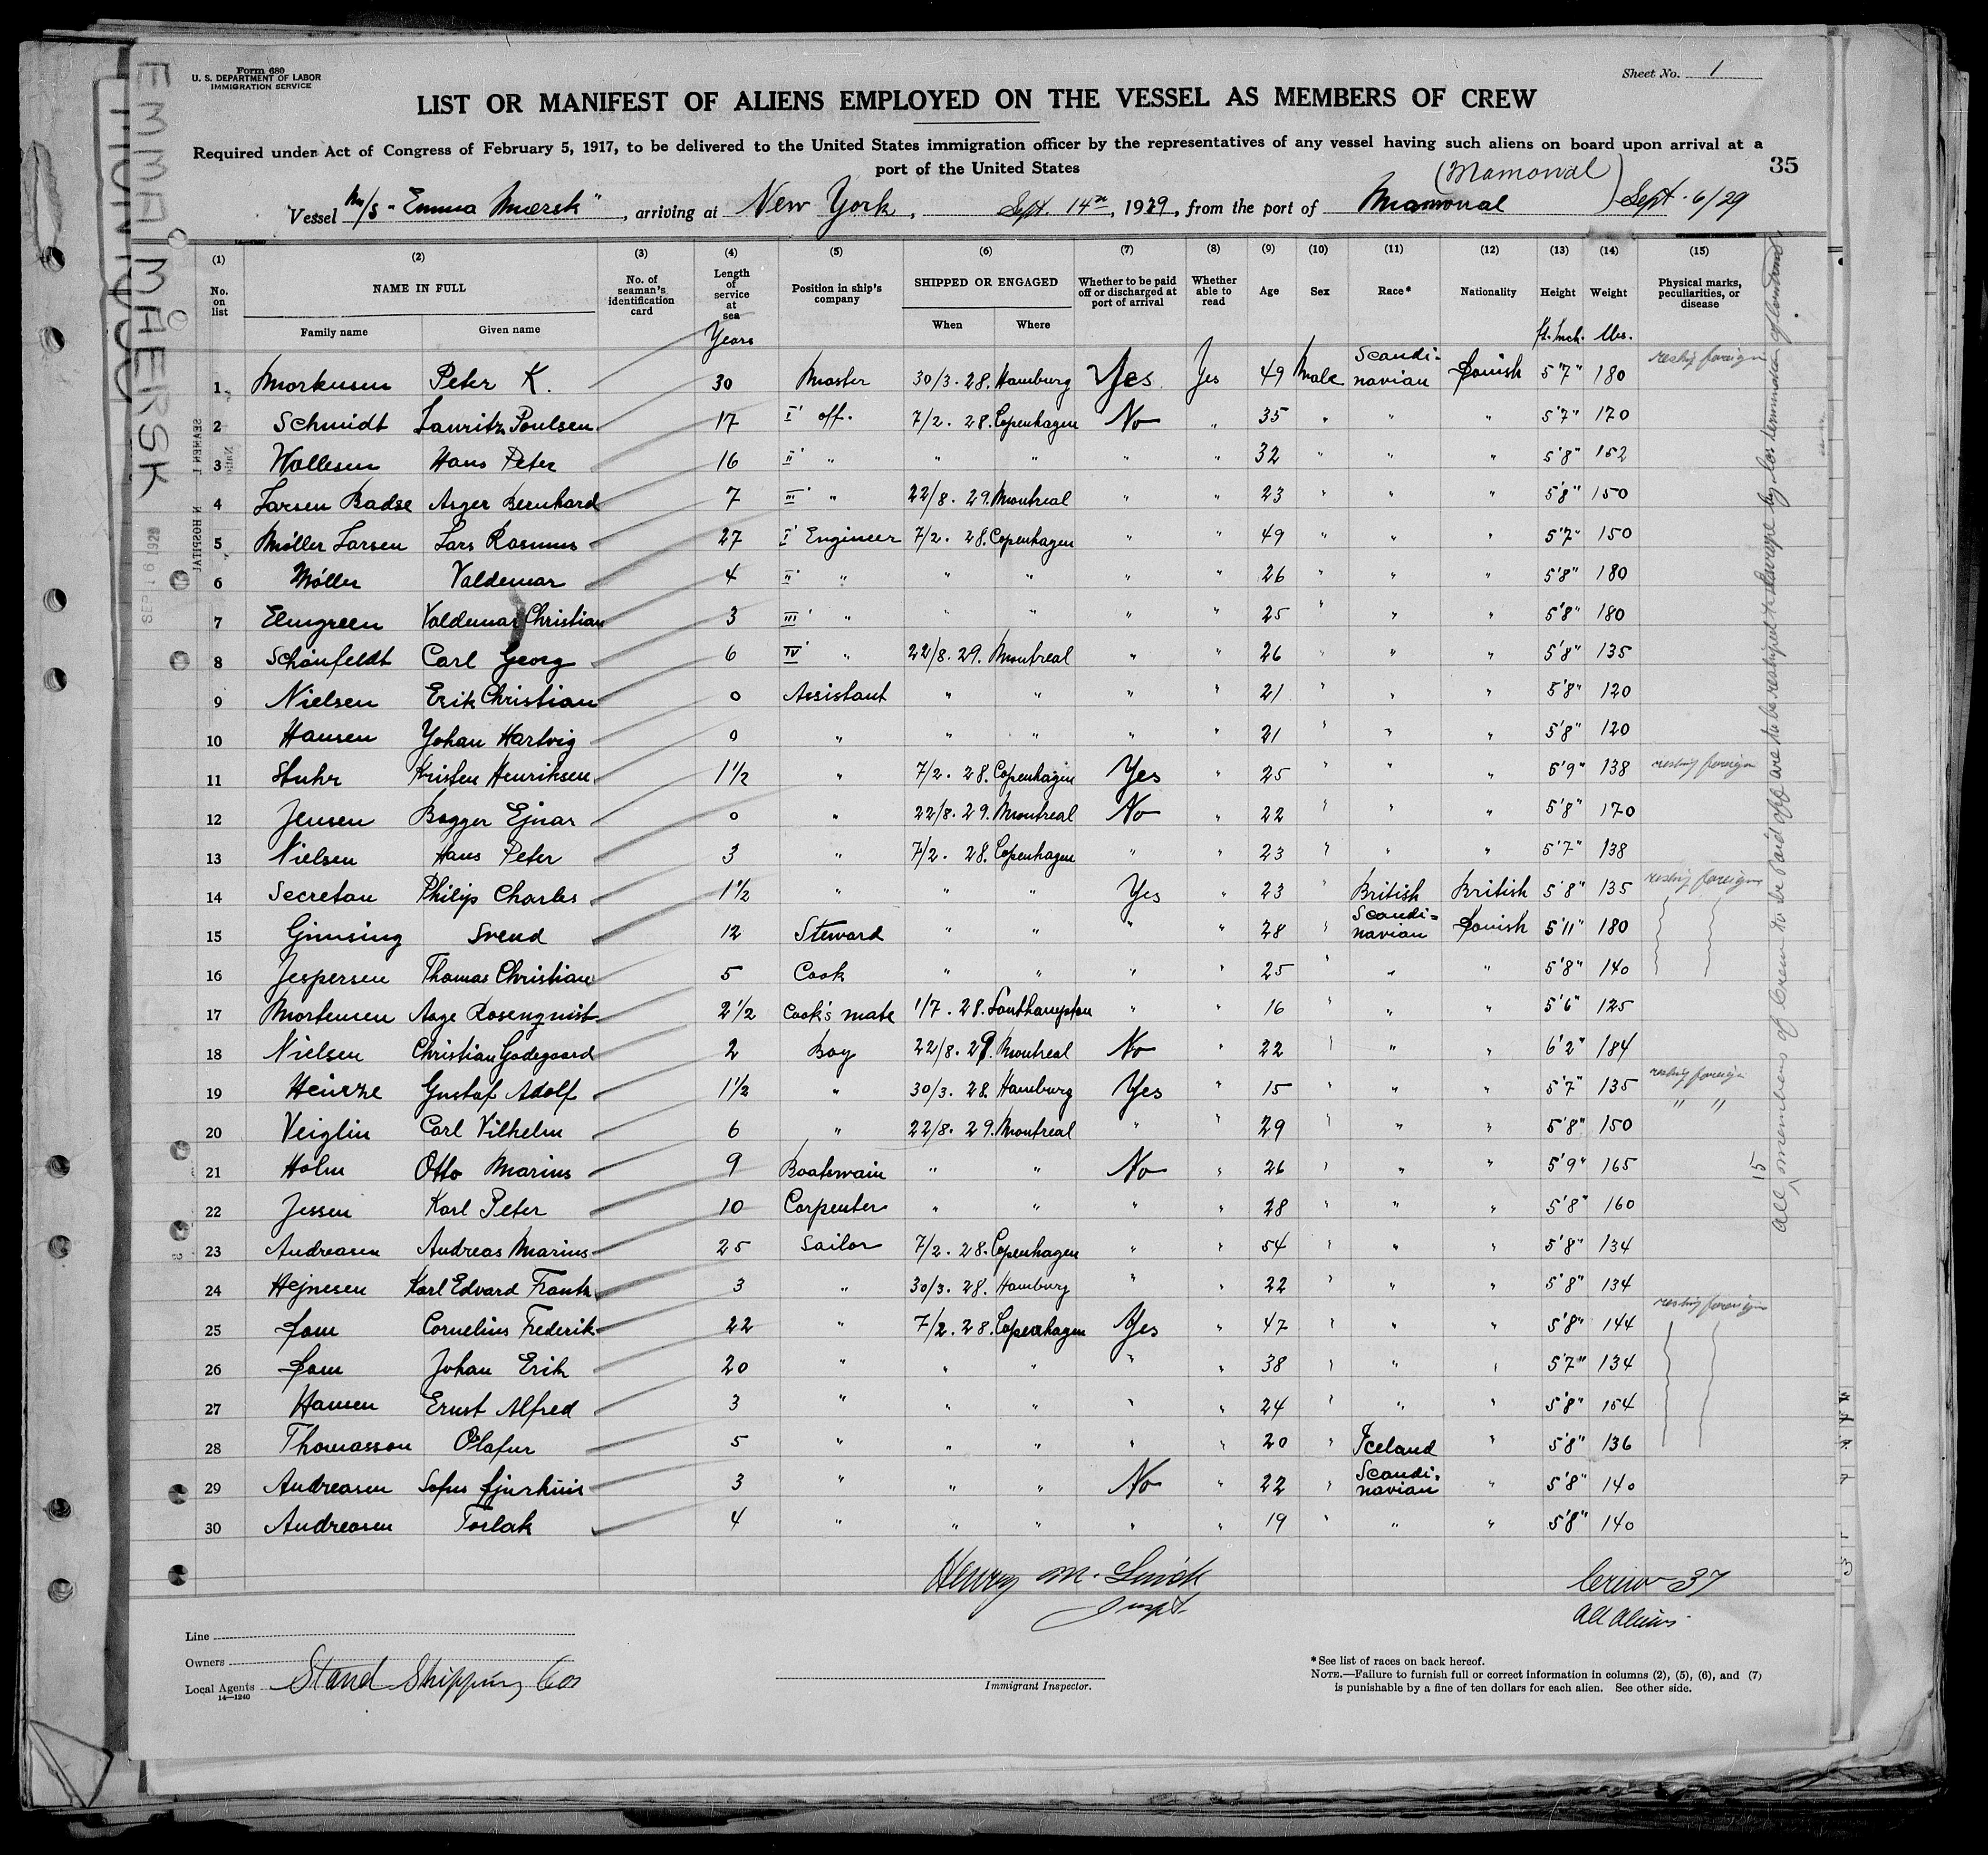 Form 680
U. S. DEPARTMENT OF LABOR
IMMIGRATION SERVICE
Sheet No. 1
LIST OR MANIFEST OF ALIENS EMPLOYED ON THE VESSEL AS MEMBERS OF CREW
Required under Act of Congress of February 5, 1917, to be delivered to the United States immigration officer by the representatives of any vessel having such aliens on board upon arrival at a
port of the United States
35
(Mamonal)
Vessel M/S "Emma Mærsk", arriving at New York, Sept. 14th, 1929, from the port of Mamonal Sept. 6/29
EMMA MAERSK
(1) (2) (3) (4) (5) (6) (7) (8) (9) (10) (11) (12) (13) (14) (15)
No. on list NAME IN FULL Family name Given name No. of seaman's identification card Length of service at sea Position in ship's company SHIPPED OR ENGAGED When Where Whether to be paid off or discharged at port of arrival Whether able to read Age Sex Race* Nationality Height Weight Physical marks, peculiarities, or disease
Years ft. Inch. lbs.
1 Mortensen Peter K. 30 Master 30/3. 28. Hamburg Yes Yes 49 Male Scandinavian Danish 5'7" 180 reship foreign
2 Schmidt Lauritz Poulsen 17 I' off. 7/2. 28. Copenhagen No " 35 " " " 5'7" 170
3 Wollesen Hans Peter 16 II' " " " " " 32 " " " 5'8" 152
4 Larsen Badse Asger Bernhard 7 III' " 22/8. 29. Montreal " " 23 " " " 5'8" 150
5 Møller Larsen Lars Rasmus 27 I' Engineer 7/2. 28. Copenhagen " " 49 " " " 5'7" 150
6 Møller Valdemar 4 II' " " " " " 26 " " " 5'8" 180
7 Elmgreen Valdemar Christian 3 III' " " " " " 25 " " " 5'8" 180
8 Schönfeldt Carl Georg 6 IV' " 22/8. 29. Montreal " " 26 " " " 5'8" 135
9 Nielsen Erik Christian 0 Assistant " " " " 21 " " " 5'8" 120
10 Hansen Johan Hartvig 0 " " " " " 21 " " " 5'8" 120
11 Stuhr Kristen Henriksen 1½ " 7/2. 28. Copenhagen Yes " 25 " " " 5'9" 138 reship foreign
12 Jensen Bagger Ejnar 0 " 22/8. 29. Montreal No " 22 " " " 5'8" 170
13 Nielsen Hans Peter 3 " 7/2. 28. Copenhagen " " 23 " " " 5'7" 138
14 Secretan Philip Charles 1½ " " " Yes " 23 " British British 5'8" 135 reship foreign
15 Ginnsing Svend 12 Steward " " " " 28 " Scandinavian Danish 5'11" 180
16 Jespersen Thomas Christian 5 Cook " " " " 25 " " " 5'8" 140
17 Mortensen Aage Rosenqvist 2½ Cook's mate 1/7. 28. Southampton " " 16 " " " 5'6" 125
18 Nielsen Christian Godegaard 2 Boy 22/8. 29. Montreal No " 22 " " " 6'2" 184
19 Gustaf Adolf 1½ " 30/3. 28. Hamburg Yes " 15 " " " 5'7" 135 reship foreign
20 Veiglin Carl Vilhelm 6 " 22/8. 29. Montreal " " 29 " " " 5'8" 150 " "
21 Holm Otto Marius 9 Boatswain " " No " 26 " " " 5'9" 165
22 Jessen Karl Peter 10 Carpenter " " " " 28 " " " 5'8" 160
23 Andreasen Andreas Marius 25 Sailor 7/2. 28. Copenhagen " " 54 " " " 5'8" 134
24 Hejnesen Karl Edvard Frantz 3 " 30/3. 28. Hamburg " " 22 " " " 5'8" 134
25 Dam Cornelius Frederik 22 " 7/2. 28. Copenhagen Yes " 47 " " " 5'8" 144 reship foreign
26 Dam Johan Erik 20 " " " " " 38 " " " 5'7" 134
27 Hansen Ernst Alfred 3 " " " " " 24 " " " 5'8" 154
28 Thomasson Olafur 5 " " " " " 20 " Iceland " 5'8" 136
29 Andreasen Sofus 3 " " " No " 22 " Scandinavian " 5'8" 140
30 Andreasen Torlak 4 " " " " " 19 " " " 5'8" 140
All 15 members of Crew to be paid off are to be reshiped to Europe by
SEP 16 1929
Henry M.
Inspt.
Crew 37
All Aliens
Line
Owners
Local Agents Stand Shipping Co
14—1240
Immigrant Inspector.
*See list of races on back hereof.
NOTE.—Failure to furnish full or correct information in columns (2), (5), (6), and (7)
is punishable by a fine of ten dollars for each alien. See other side.